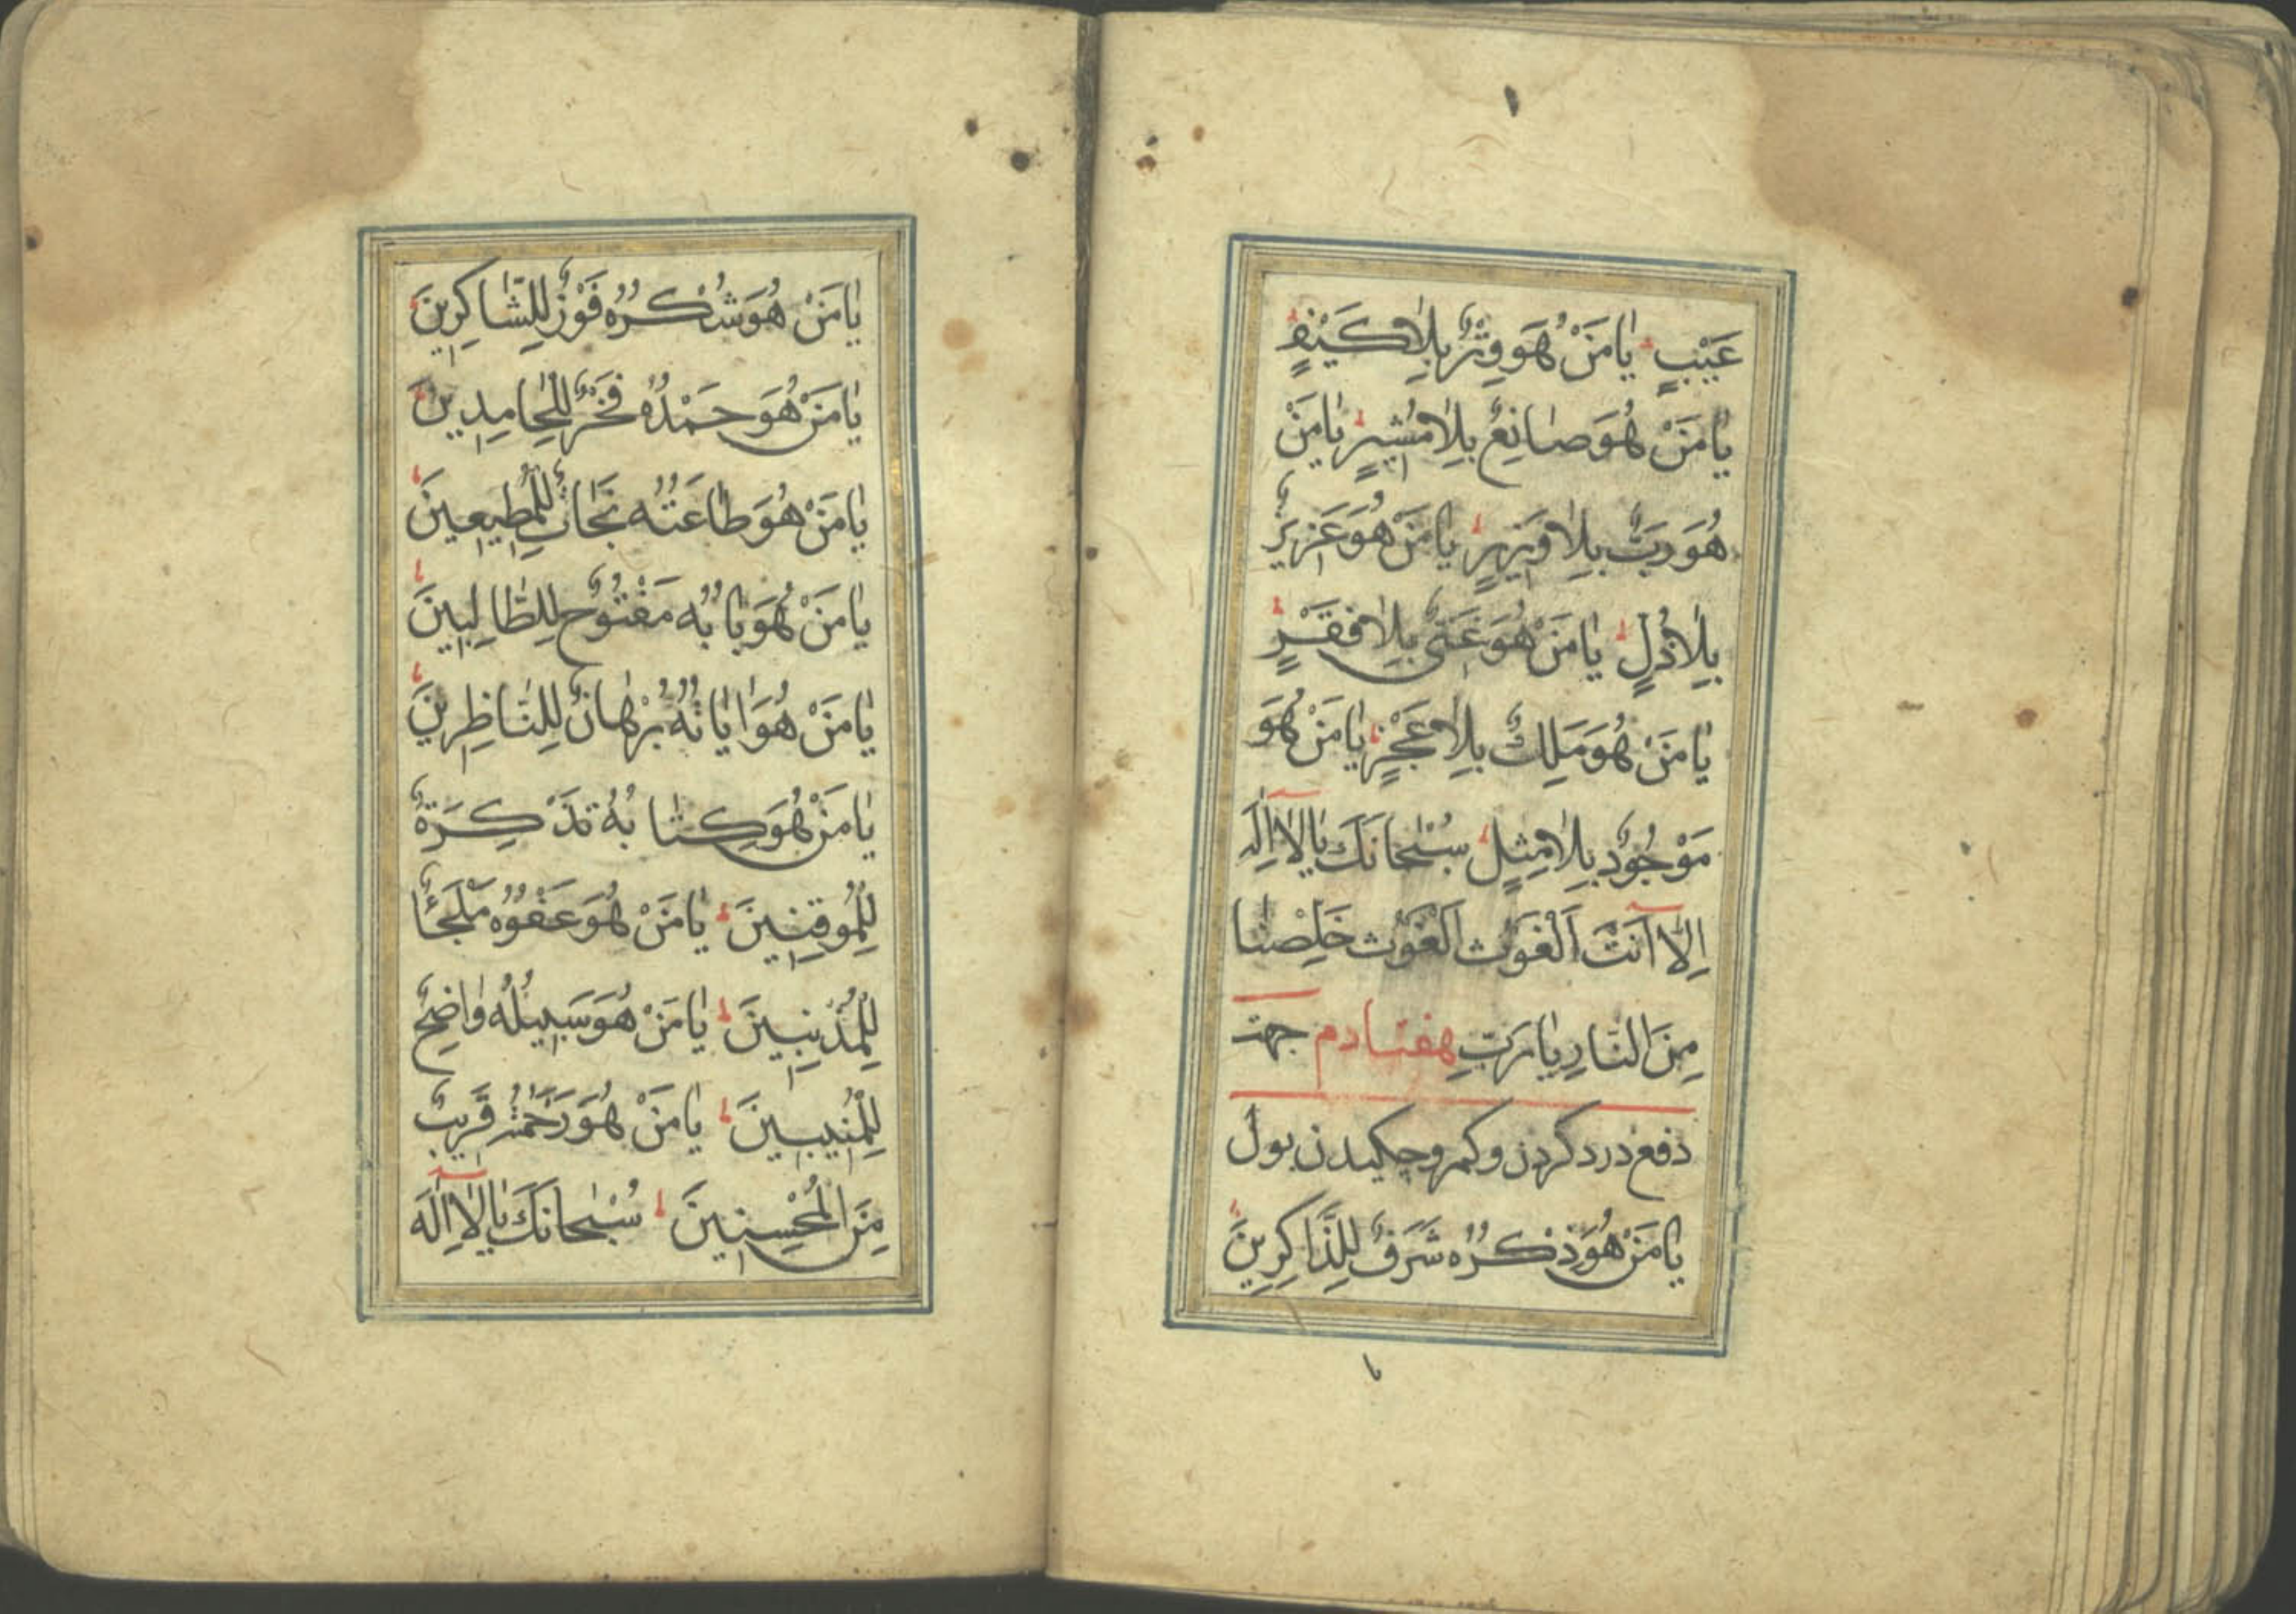 عَيْبٍ يٰا مَنْ هُوَ وِتْرٌ بِلٰا كَيْفٍ
يٰا مَنْ هُوَ صٰانِعٌ بِلٰا مُشيرٍ يٰا مَنْ
هُوَ رَبٌّ بِلٰا وَزيرٍ يٰا مَنْ هُوَ عَزيزٌ
بِلٰا ذُلٍ يٰا مَنْ هُوَ غَنىٌّ بِلٰا فَقْرٍ
يٰا مَنْ هُوَ مَلِكٌ بِلٰا عَجْزٍ يٰا مَنْ هُوَ
مَوْجُودٌ بِلٰا مِثِلٍ سُبْحٰانَكَ يٰا لٰا اِلٰهَ
اِلّٰا اَنْتَ اَلْغَوْث اَلْغَوْث خَلِّصْنٰا
مِنَ النّٰارِ يٰا رَبِّ هفتادم جهت
دفع درد کردن و کمر و چکیدن بول
يٰا مَنْ هُوَ ذِكْرُهُ شَرَفٌ لِلذّٰاكِرِينَ
يٰا مَنْ هُوَ شُكْرُهُ فَوْزٌ لِلشّٰاكِرِينَ
يٰا مَنْ هُوَ حَمْدُهُ فَخْرٌ لِلْحٰامِدِينَ
يٰا مَنْ هُوَ طٰاعَتُهُ نَجٰاتٌ لِلْمُطِيعِينَ
يٰا مَنْ هُوَ بٰابُهُ مَفْتُوحٌ لِلطّٰالِبِينَ
يٰا مَنْ هُوَ اٰيٰاتُهُ بُرْهٰانٌ لِلنّٰاظِرِينَ
يٰا مَنْ هُوَ كِتٰابُهُ تَذْكِرَةٌ
لِلْمُوقِنِينَ يٰا مَنْ هُوَ عَفْوُهُ مَلْجَأٌ
لِلْمُذْنِبِينَ يٰا مَنْ هُوَ سَبِيلُهُ وٰاضِحٌ
لِلْمُنِيبِينَ يٰا مَنْ هُوَ رَحْمَتُهُ قَرِيبٌ
مِنَ الْمُحْسِنِينَ سُبْحٰانَكَ يٰا لٰا اِلٰهَ